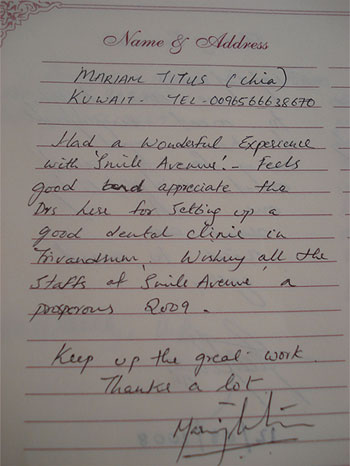 Name & Address
MARIAM TITUS (Chia)
KUWAIT - TEL - 0096566638670
Had a wonderful Experience
with 'Smile Avenue'! - Feels
good appreciate the
Drs here for setting up a
good dental clinic in
Trivandrum. Wishing all the
Staffs of 'Smile Avenue' a
prosperous 2009.
Keep up the great work.
Thanks a lot